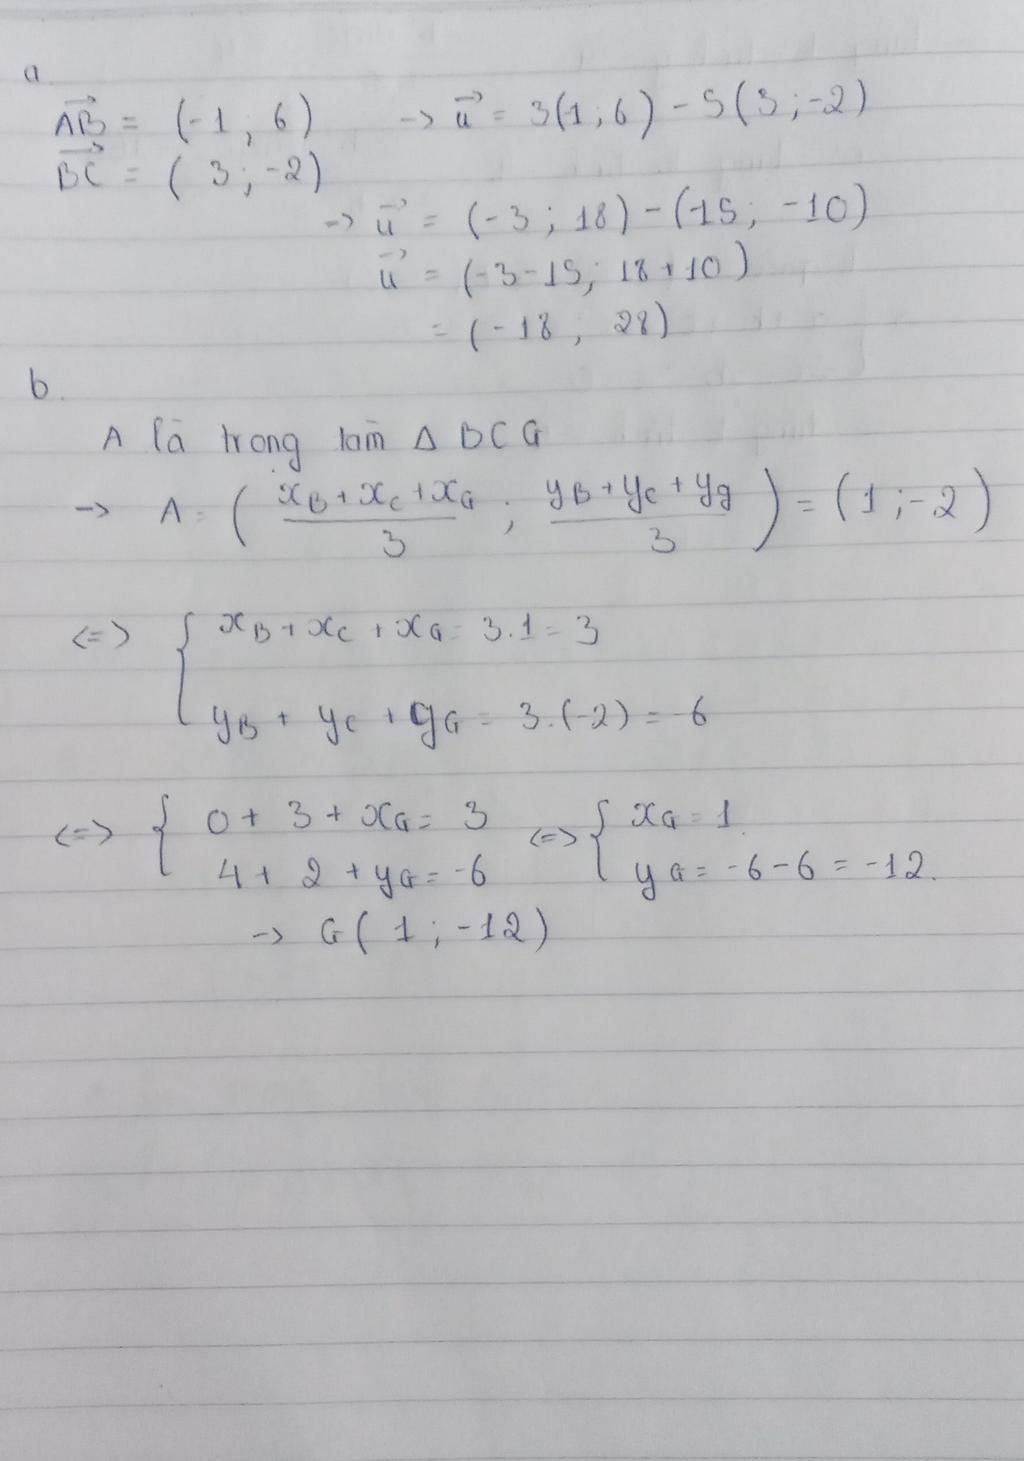 a.
AB→ = (-1 ; 6) -> u→ = 3(1 ; 6) - 5(3 ; -2)
BC→ = ( 3 ; -2)
-> u→ = (-3 ; 18) - (15 ; -10)
u→ = (-3-15 ; 18+10)
= (-18 ; 28)
b.
A là trọng tâm Δ BCG
-> A = ( (x_B + x_C + x_G)/3 ; (y_B + y_C + y_g)/3 ) = (1 ; -2)
<=> { x_B + x_C + x_G = 3.1 = 3
y_B + y_C + y_G = 3.(-2) = -6
<=> { 0 + 3 + x_G = 3 <=> { x_G = 1.
4 + 2 + y_G = -6 y_G = -6 - 6 = -12.
-> G( 1 ; -12)